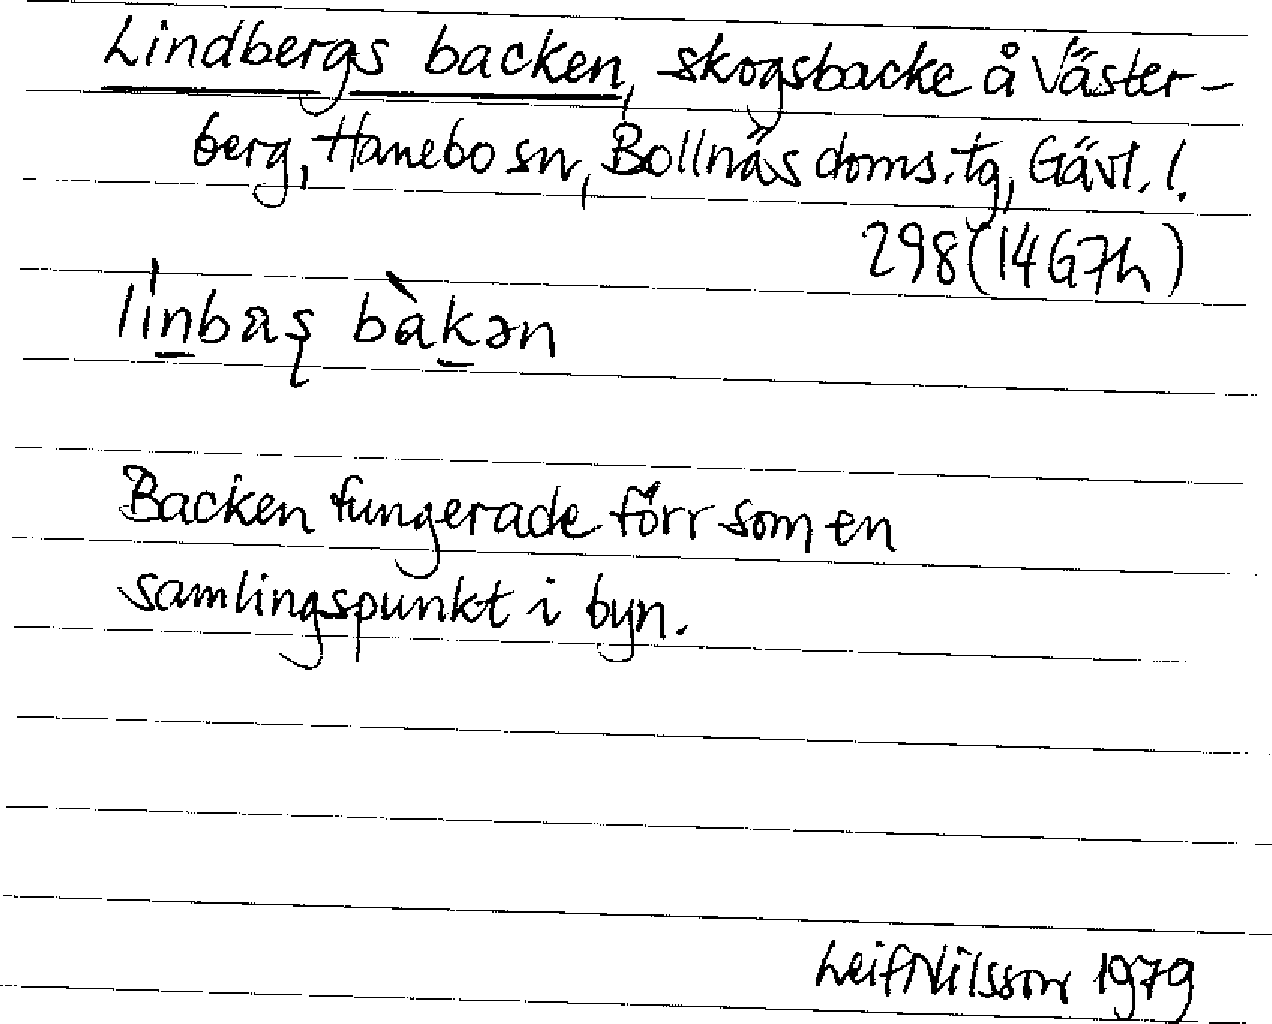 Lindbergs backen, skogsbacke å Väster-
berg, Hanebo sn, Bollnäs doms.tg, Gävl. l.
298 (14G7h)
lìnbas̨ bàkən
Backen fungerade förr som en
samlingspunkt i byn.
Leif Nilsson 1979